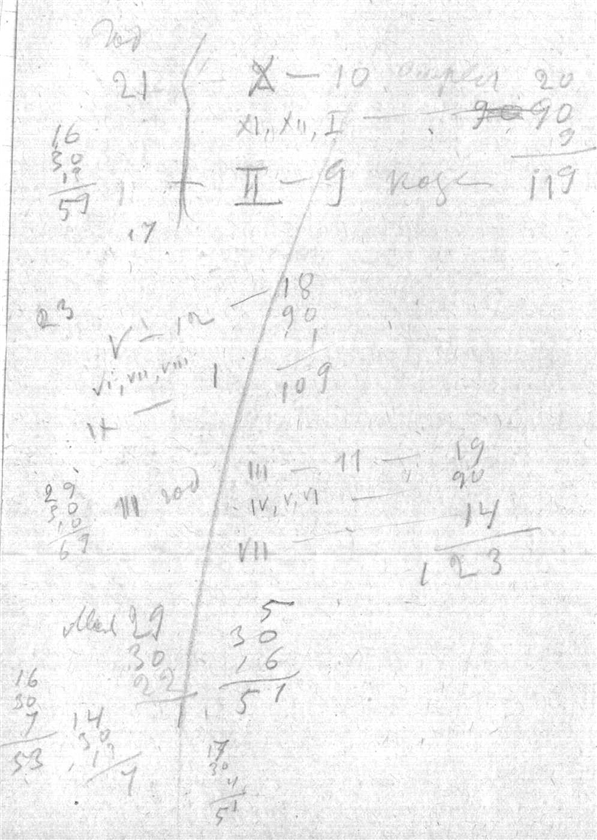 год
21 X — 10 20
XI, XII, I — 90
9
II — 9 119
16
30
13
59
17
23
V — 12 — 18
90
VI, VII, VIII 1
IX — 1 109
29
30
10
69
III год
III — 11 — 19
IV, V, VI — 90
VII — 14
123
Мая 29
30
22
5
30
16
51
16
30
7
53
14
30
17
30
4
51